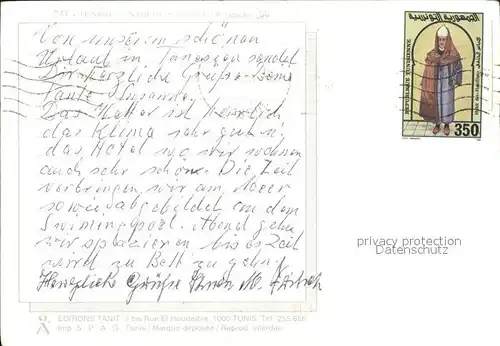 Von unserem schönen
Urlaub in Tunesien sendet
Dir herzliche Grüße Deine
Tante Susanne.
Das Wetter ist herrlich
das Klima sehr gut u.
das Hotel wo wir wohnen
auch sehr schön. Die Zeit
verbringen wir am Meer
sowie abgebildet an dem
Swimingpool. Abend gehn
wir spazieren bis es Zeit
wird zu Bett zu gehn.
Herzliche Grüße
EDITIONS TANIT 1 bis Rue El Houdaibia, 1000 TUNIS Tél. 255.856
Imp. S. P. A. G. Tunis / Marque déposée / Reprod. interdite
REPUBLIQUE TUNISIENNE
350
privacy protection
Datenschutz